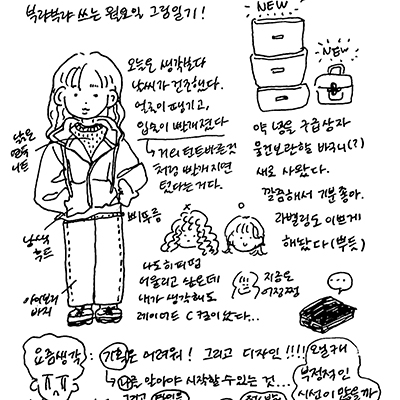 부랴부랴 쓰는 월요일 그림일기!
NEW
NEW
오늘은 생각보다
날씨가 건조했다.
얼굴이 땡기고,
입술이 빨개졌다
거의 틴트바른것
처럼 빨개지면
텄다는거다.
낡은
니트
남색
후드
삐뚜름
아이보리
바지
약 넣을 구급상자
물건보관할 바구니(?)
새로 사왔다.
깔끔해서 기분좋아.
라벨링도 이쁘게
해놨다 (뿌듯)
나도 히피펌
어울리고 싶은데
내가 생각해도
레이어드 C컬이 낫다...
지금도
어정쩡
요즘생각 : 기획은 어려워! 그리고 디자인!!!!
나를 알아야 시작할 수 있는 것...
그리고
오늘
부정적인
시선이 많을까